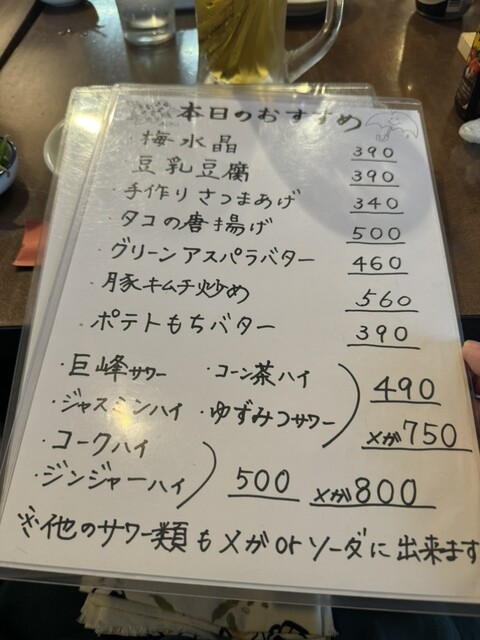 本日のおすすめ
・梅水晶 390
豆乳豆腐 390
・手作りさつまあげ 340
・タコの唐揚げ 500
・グリーンアスパラバター 460
・豚キムチ炒め 560
・ポテトもちバター 390
・巨峰サワー ・コーン茶ハイ 490
・ジャスミンハイ ・ゆずみつサワー メガ750
・コークハイ
・ジンジャーハイ 500 メガ800
※他のサワー類もメガorソーダに出来ます